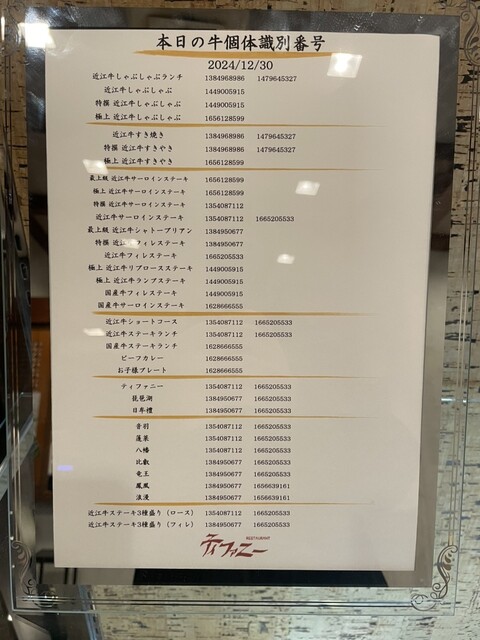 本日の牛個体識別番号
2024/12/30
近江牛しゃぶしゃぶランチ 1384968986 1479645327
近江牛しゃぶしゃぶ 1449005915
特撰 近江牛しゃぶしゃぶ 1449005915
極上 近江牛しゃぶしゃぶ 1656128599
近江牛すき焼き 1384968986 1479645327
特撰 近江牛すきやき 1384968986 1479645327
極上 近江牛すきやき 1656128599
最上級 近江牛サーロインステーキ 1656128599
極上 近江牛サーロインステーキ 1656128599
特撰 近江牛サーロインステーキ 1354087112
近江牛サーロインステーキ 1354087112 1665205533
最上級 近江牛シャトーブリアン 1384950677
特撰 近江牛フィレステーキ 1384950677
近江牛フィレステーキ 1665205533
極上 近江牛リブロースステーキ 1449005915
極上 近江牛ランプステーキ 1449005915
国産牛フィレステーキ 1449005915
国産牛サーロインステーキ 1628666555
近江牛ショートコース 1354087112 1665205533
近江牛ステーキランチ 1354087112 1665205533
国産牛ステーキランチ 1628666555
ビーフカレー 1628666555
お子様プレート 1628666555
ティファニー 1354087112 1665205533
琵琶湖 1384950677 1665205533
日牟禮 1384950677 1665205533
音羽 1354087112 1665205533
蓬莱 1354087112 1665205533
八幡 1354087112 1665205533
比叡 1384950677 1665205533
竜王 1384950677 1665205533
鳳凰 1384950677 1656639161
浪漫 1384950677 1656639161
近江牛ステーキ3種盛り（ロース） 1354087112 1665205533
近江牛ステーキ3種盛り（フィレ） 1384950677 1665205533
RESTAURANT
ティファニー